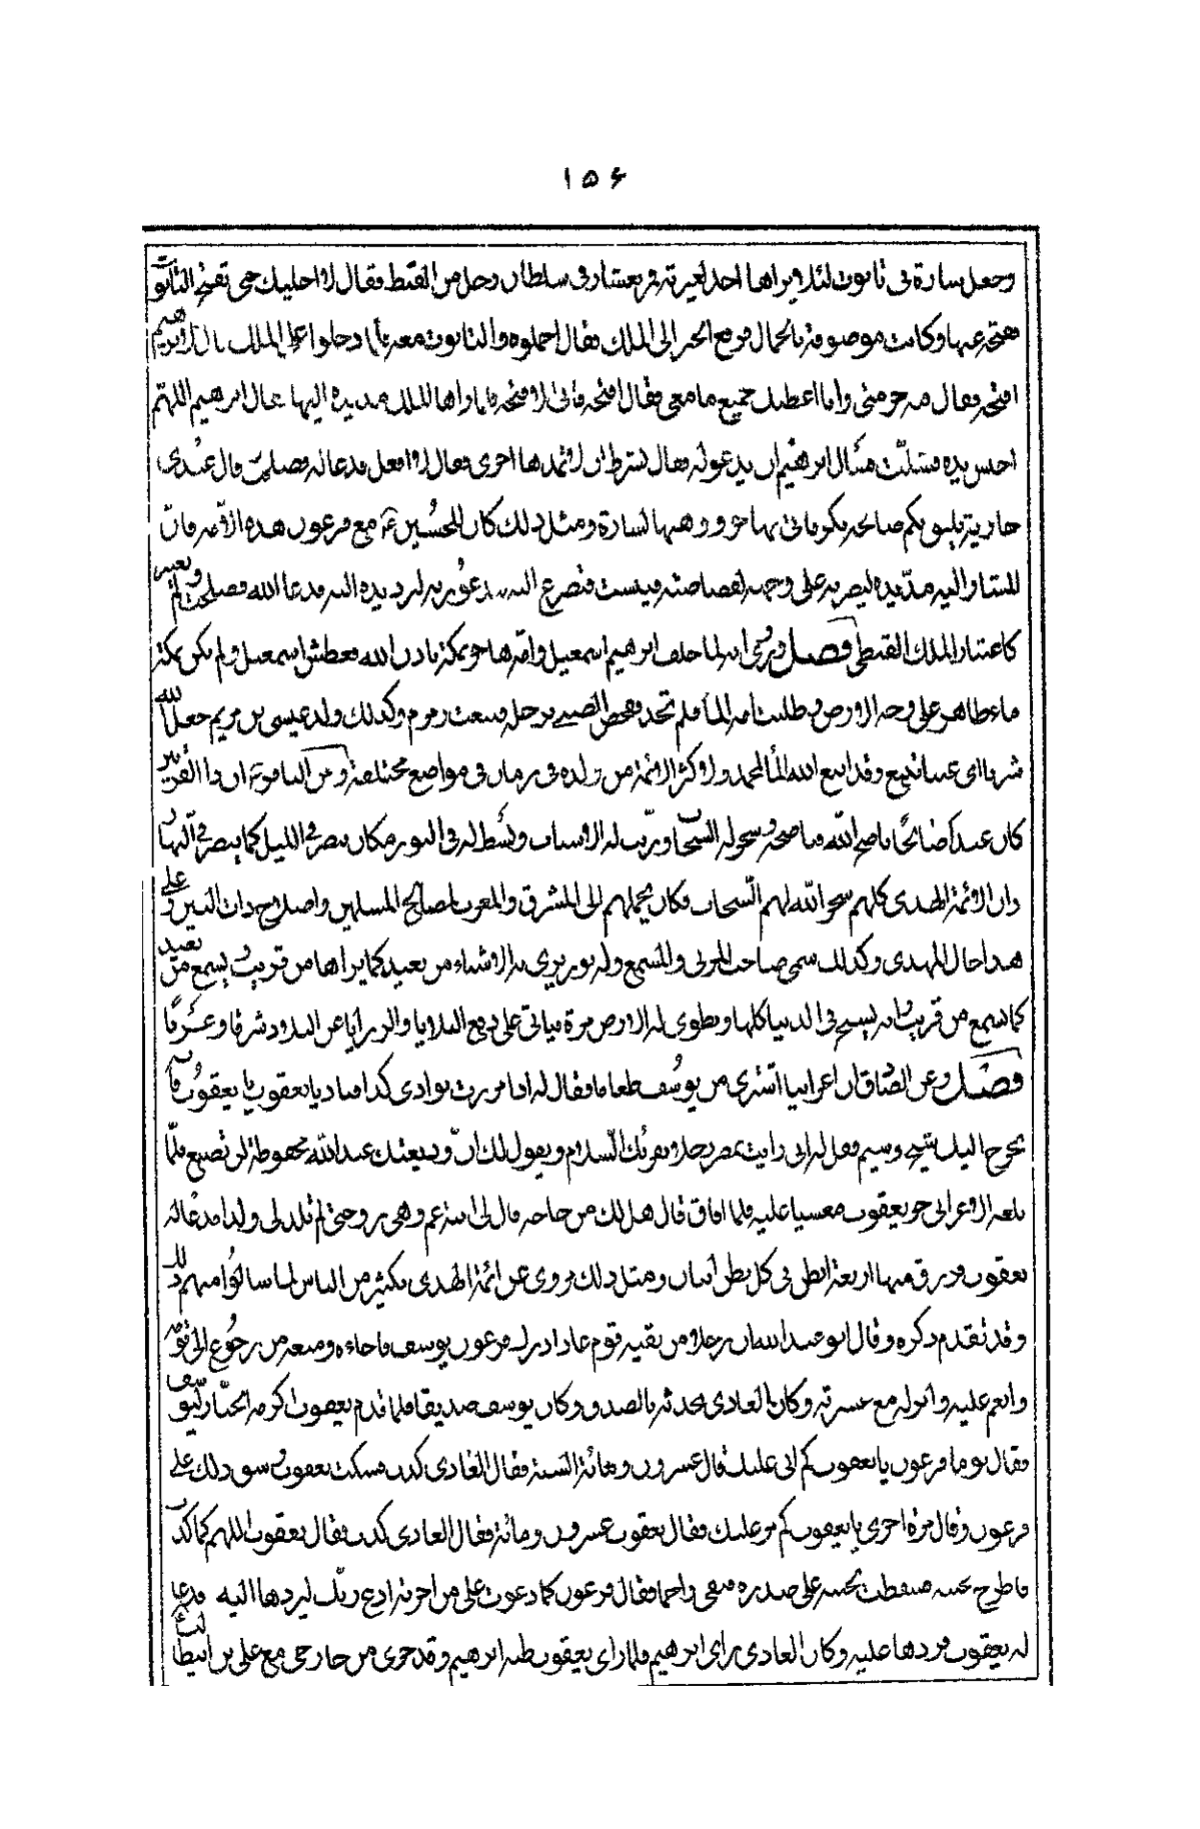 ١٥٦
وجعل سارة في تابوت لئلا يراها احد لغيرته فمر بعشار في سلطان رجل من القبط فقال لا احليك حتى تفتح التابوت
ففتحه عنها وكانت موصوفة بالجمال فرفع الخبر إلى الملك فقال احملوه والتابوت معه فلما دخلوا على الملك قال لابرهيم
افتحه فقال فيه حرمتي وانا اعطيك جميع ما معي فقال افتحه فاني لا فتحه فلما راها الملك مد يده اليها فقال ابرهيم اللهم
احبس يده فشلّت فسأل ابرهيم ان يدعو له فقال بشرط ان لا تمدها اخرى فقال لا افعل فدعا له فصلحت قال عندي
جارية يليق بكم صالحة بكم فاتى بهاجر ووهبها لسارة ومثل ذلك كان للحسين ع مع فرعون هذه الأمة فانّ
الملك القبطي فصل وروي انه لما خلف ابرهيم اسمعيل وامه هاجر بمكة باذن الله فعطش اسمعيل ولم يكن بمكة
ماء ظاهر على وجه الارض وطلبت امه الماء فلم تجد وفحص الصبي برجله فنبعت زمزم وكذلك ولد عيسى بن مريم جعل الله
كان عبدا ضالحًا ناصح الله فناصحه وسخر له السحاب ورتب له الاسباب وبسط له في النور فكان يبصر في الليل كما يبصر في النهار
وان الائمة الهدى كلهم سخر الله لهم السّحاب فكان يحملهم الى المشرق والمغرب لمصالح المسلمين واصلاح ذات البين وعلى
هذا حال المهدي وكذلك سمي صاحب المرئى والمسمع وله نور يرى به الاشياء من بعيد كما يراها من قريب ويسمع من بعيد
كما يسمع من قريب وانه يسيح في الدنيا كلها ويطوى له الارض مرة فياتي على دفع البلايا والرزايا عن البلاد شرقا وغربًا
فصل وعن الصادق ان اعرابيا اشترى من يوسف طعاما فقال له اذا مررت بوادي كذا فناد يا يعقوب يا يعقوب فانه
يخرج اليك شيخ وسيم فقل له اني رايت بمصر رجلا يقرئك السلام ويقول لك انّ وديعتك عند الله محفوظة لن تضيع فلما
بلغه الاعرابي خر يعقوب مغشيا عليه فلما افاق قال هل لك من حاجة قال لي ابنة عم وهي زوجتي لم تلد لي ولدا فدعا له
يعقوب فرزق منها اربعة ابطن في كل بطن اثنان ومثل ذلك يروى عن ائمة الهدى بكثير من الناس لما سالوا منهم ذلك
وقد تقدم ذكره وقال ابو عبد الله ان رجلا من بقية قوم عاد ادرك فرعون يوسف
وانعم عليه وانزله مع عسرته وكان العادي يحدثه بالصدق وكان يوسف صديقا فلما قدم يعقوب اكرمه الجبّار ليوسف
فقال يوما فرعون يا يعقوب كم اتى عليك قال عشرون ومائة السنة فقال العادي كذب فسكت يعقوب وشق ذلك على
فرعون وقال مرة اخرى يا يعقوب كم مر عليك فقال يعقوب عشرون ومائة فقال العادي كذب فقال يعقوب اللهم كما كذب
فاطرح لحيته فسقطت لحيته على صدره فبقي واجما فقال فرعون كما دعوت على من اجرته ادع ربّك ليردها اليه فدعا
له يعقوب فردها عليه وكان العادي راى ابرهيم فلما راى يعقوب ظنه ابرهيم وقد جرى من خارجي مع علي بن ابيطالب